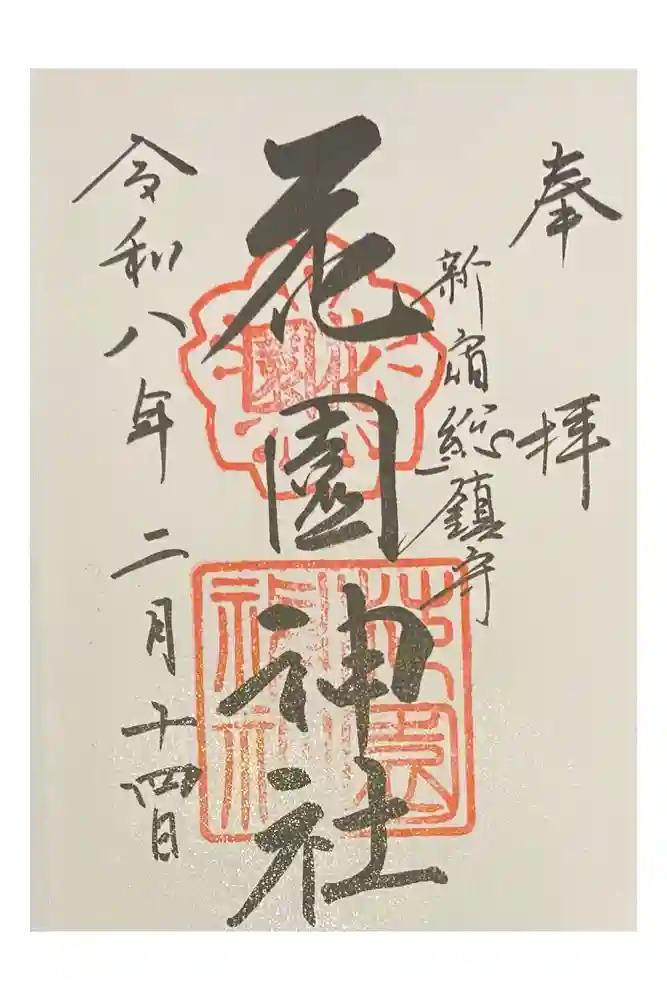 奉拝
新宿総鎮守
花園神社
令和八年二月十四日